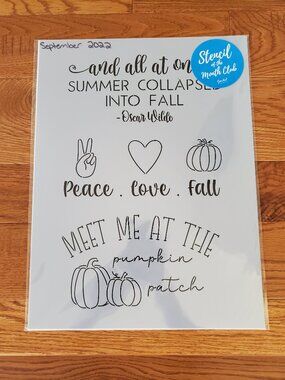 September 2022
Stencil
of the
Month Club
and all at on
SUMMER COLLAPSED
INTO FALL
-Oscar Wilde
Peace . love . fall
MEET ME AT THE
pumpkin
patch